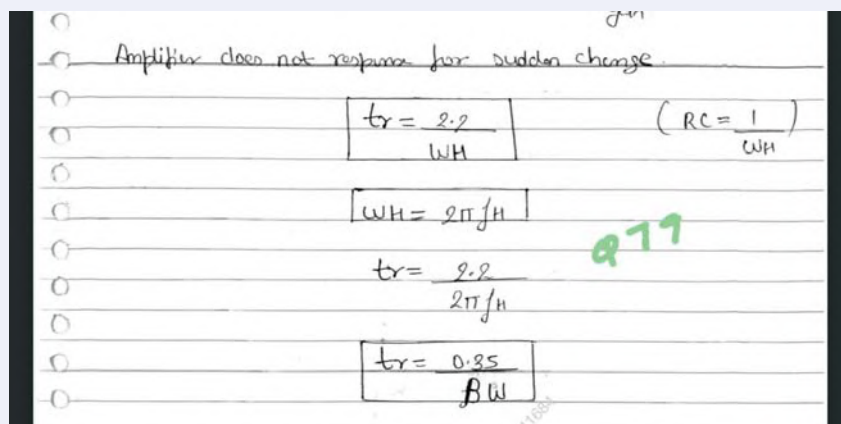 Amplifier does not response for sudden change.
tr = 2.2 / WH (RC = 1 / WH)
WH = 2πfH
Q79
tr = 2.2 / 2πfH
tr = 0.35 / BW